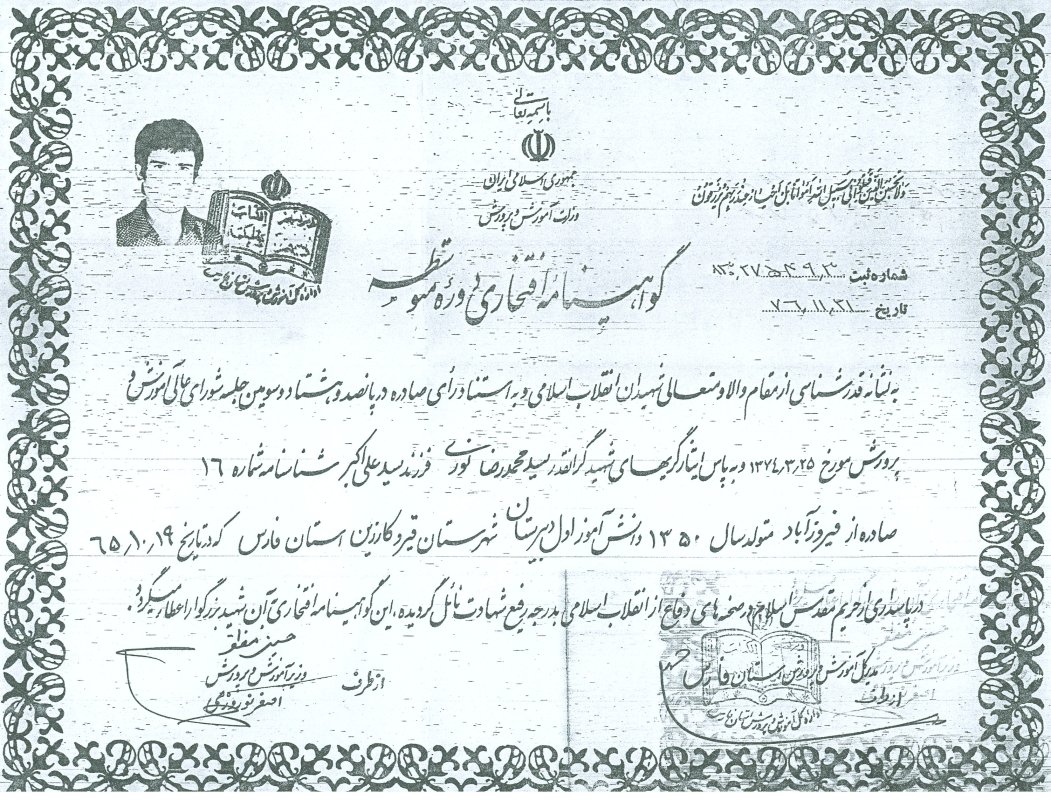 باسمه تعالی
جمهوری اسلامی ایران
وزارت آموزش و پرورش
ولا تحسبن الذین قتلوا فی سبیل الله امواتا بل احیاء عند ربهم یرزقون
گواهینامه افتخاری دوره متوسطه
شماره ثبت
تاریخ ۷۶/۱۱/۲۱
به نشانه قدرشناسی از مقام والا و متعالی شهیدان انقلاب اسلامی و به استناد رأی صادره در پانصد و هشتاد و سومین جلسه شورای عالی آموزش و
پرورش مورخ ۱۳۷۴/۳/۲۵ و به پاس ایثارگریهای شهید گرانقدر سید محمدرضا نوری فرزند سید علی اکبر شناسنامه شماره ۱۶
صادره از فیروزآباد متولد سال ۱۳۵۰ دانش آموز اول دبیرستان شهرستان قیر و کارزین استان فارس که در تاریخ ۶۵/۱۰/۱۹
در پاسداری از حریم مقدس اسلام در صحنه های دفاع از انقلاب اسلامی بدرجه رفیع شهادت نائل گردیده، این گواهینامه افتخاری به آن شهید بزرگوار اعطاء میگردد.
مدیرکل آموزش و پرورش استان فارس
از طرف
اداره کل آموزش و پرورش استان فارس
حسین مظفر
وزیر آموزش و پرورش
از طرف
اصغر نوروزی